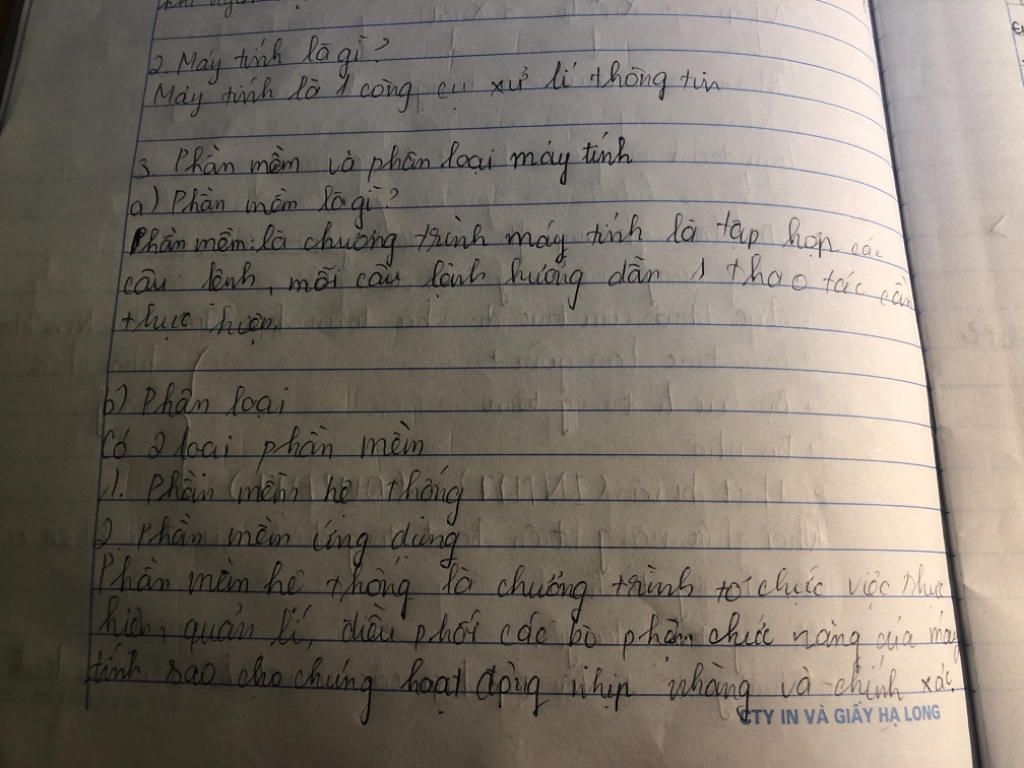 2. Máy tính là gì?
Máy tính là 1 công cụ xử lí thông tin
3. Phần mềm và phân loại máy tính
a) Phần mềm là gì?
Phần mềm là chương trình máy tính là tập hợp các
câu lệnh, mỗi câu lệnh hướng dẫn 1 thao tác cần
thực hiện.
b) Phân loại
Có 2 loại phần mềm
1. Phần mềm hệ thống
2. Phần mềm ứng dụng
Phần mềm hệ thống là chương trình tổ chức việc thực
hiện, quản lí, điều phối các bộ phận chức năng của máy
tính sao cho chúng hoạt động nhịp nhàng và chính xác.
CTY IN VÀ GIẤY HẠ LONG